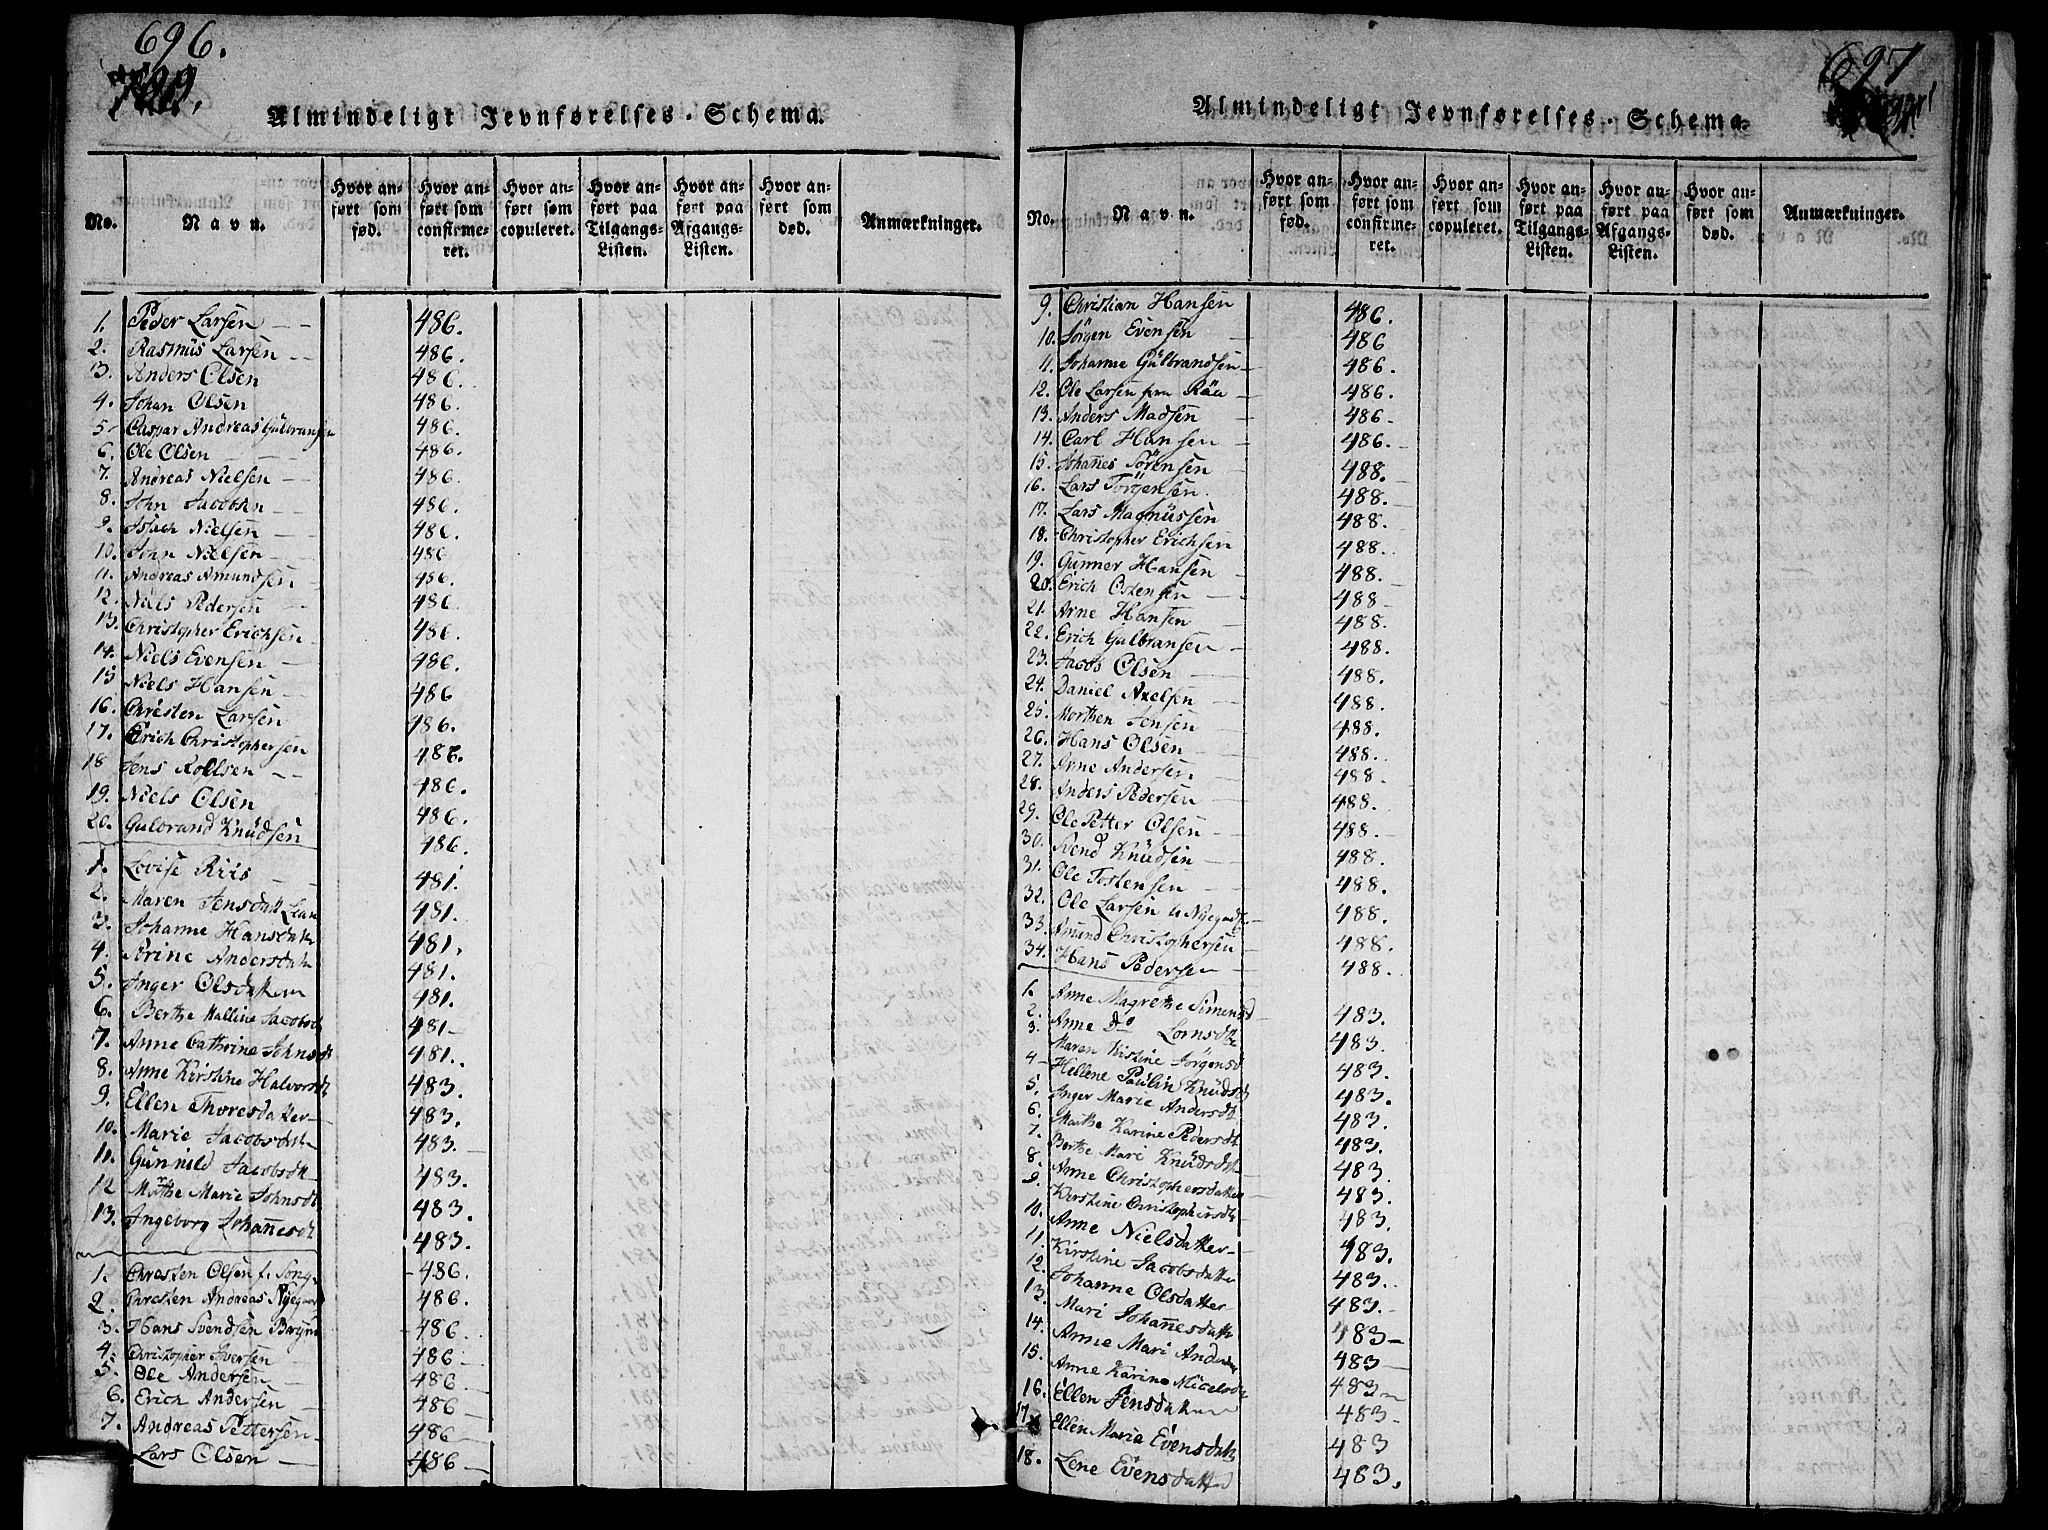 696.
Almindeligt Jevnførelses-Schema.
No. Navn. Hvor anført som fød. Hvor anført som confirmeret. Hvor anført som copuleret. Hvor anført paa Tilgangs-Listen. Hvor anført paa Afgangs-Listen. Hvor anført som død. Anmærkninger.
1. Peder Larsen 486.
2. Rasmüs Larsen 486.
3. Anders Olsen 486.
4. Johan Olsen 486.
5 Caspar Andreas Gülbransen 486.
6. Ole Olsen 486.
7. Andreas Nielsen 486.
8. John Jacobsen 486.
9. Isach Nielsen 486.
10. John Nielsen 486
11. Andreas Amundsen 486.
12. Niels Pedersen 486.
13. Christopher Erichsen 486.
14. Niels Evensen 486.
15 Niels Hansen 486
16. Christen Larsen 486.
17. Erich Christophersen 486.
18 Jens Rollsen 486.
19. Niels Olsen 486.
20. Gulbrand Knüdsen 486.
1. Lovise Riis 481.
2. Maren Jensdatt 481.
3. Johanne Hansdatt 481.
4. Sörine Andersdatt 481.
5. Inger Olsdatter 481.
6. Berthe Malline Jacobsd 481
7. Anne Cathrine Johnsdt 481.
8. Anne Kirstine Halvorsdt 483.
9. Ellen Thoresdatter 483.
10. Marie Jacobsdatt 483.
11. Günnild Jacobsdtt 483.
12 Marthe Marie Johnsdt 483.
13. Ingeborg Johannesdt 483.
1. Christen Olsen f. Song 486.
2. Christen Andreas Nyegaard 486.
3. Hans Svendsen 486
4. Christopher Iversen 486
5. Ole Andersen 486
6. Erich Andersen 486
7. Andreas Pettersen 486
Lars Olsen 486
697
Almindeligt Jevnførelses-Schema.
No. Navn. Hvor anført som fød. Hvor anført som confirmeret. Hvor anført som copuleret. Hvor anført paa Tilgangs-Listen. Hvor anført paa Afgangs-Listen. Hvor anført som død. Anmærkninger.
9. Christian Hansen 486.
10. Jörgen Evensen 486
11. Johanne Gülbrandsen 486.
12. Ole Larsen fra Räa 486.
13. Anders Madsen 486
14. Carl Hansen 486.
15. Johannes Sörensen 488.
16. Lars Törgensen. 488.
17. Lars Magnüssen 488.
18. Christopher Erichsen 488.
19. Gunner Hansen 488.
20. Erich Ostensen 488
21. Arne Hansen 488.
22. Erich Gulbransen 488.
23. Jacob Olsen 488.
24. Daniel Axelsen 488.
25. Morthen Jensen 488.
26. Hans Olsen 488.
27. Arne Andersen 488.
28. Anders Pedersen 488.
29. Ole Petter Olsen 488.
30. Svend Knüdsen 488.
31. Ole Tostensen 488.
32. Ole Larsen 488.
33. Amund Christophersen 488.
34. Hans Pedersen 488.
1. Anne Magrethe Simensd 483.
2. Anne Do Lornsdtt 483.
3. Maren Kistine Jörgensd 483.
4 Hellene Paulin Knüdsd 483.
5. Inger Marie Andersdt 483.
6. Marthe Karine Pedersdt 483.
7. Berthe Mari Knüdsdtt 483.
8. Anne Christophersdatter 483.
9. Kerstine Christophersdt 483.
10. Anne Nielsdatter 483.
11. Kirstine Jacobsdatter 483.
12. Johanne Olsdatter 483.
13. Mari Johannesdatt 483
14. Anne Mari Andersd 483
15. Anne Karine Nicelsdt 483
16. Ellen Jensdatter 483
17 Ellen Marie Evensdatt 483
18. Lene Evensdatter 483.